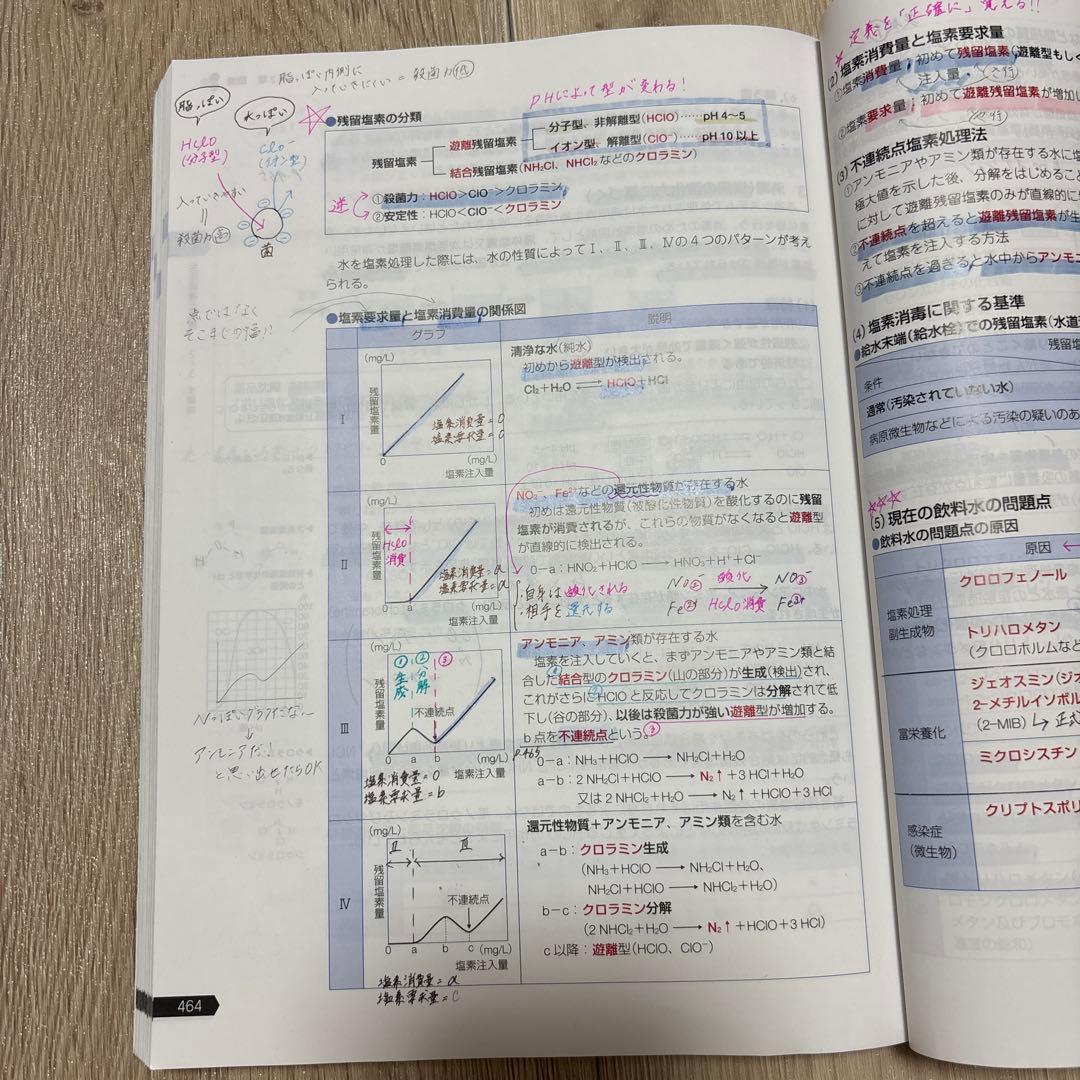 脂っぽい内側に
入っていきにくい = 殺菌力低
脂っぽい
水っぽい
HClO
(分子型)
ClO⁻
(イオン型)
入っていきやすい
=
殺菌力高
菌
pHによって型が変わる!
●残留塩素の分類
残留塩素
遊離残留塩素
分子型、非解離型(HClO)……pH 4〜5
イオン型、解離型(ClO⁻)……pH 10 以上
結合残留塩素(NH₂Cl、NHCl₂ などのクロラミン)
逆
①殺菌力:HClO>ClO⁻>クロラミン
②安定性:HClO<ClO⁻<クロラミン
水を塩素処理した際には、水の性質によってⅠ、Ⅱ、Ⅲ、Ⅳの4つのパターンが考え
られる。
点ではなく
そこまでの幅!!
●塩素要求量と塩素消費量の関係図
グラフ
説明
Ⅰ
(mg/L)
残留塩素量
塩素消費量=0
塩素要求量=0
0
(mg/L)
塩素注入量
清浄な水(純水)
初めから遊離型が検出される。
Cl₂+H₂O ⇄ HClO+HCl
Ⅱ
(mg/L)
残留塩素量
HClO
消費
塩素消費量=a
塩素要求量=a
0 a (mg/L)
塩素注入量
NO₂⁻、Fe²⁺などの還元性物質が存在する水
初めは還元性物質(被酸化性物質)を酸化するのに残留
塩素が消費されるが、これらの物質がなくなると遊離型
が直線的に検出される。
0−a:HNO₂+HClO → HNO₃+H⁺+Cl⁻
・自身は酸化される
・相手を還元する
NO₂⁻ 酸化 → NO₃⁻
Fe²⁺ HClO消費 Fe³⁺
Ⅲ
(mg/L)
残留塩素量
① ② ③
生成
分解
不連続点
0 a b (mg/L)
塩素注入量
塩素消費量=0
塩素要求量=b
アンモニア、アミン類が存在する水
塩素を注入していくと、まずアンモニアやアミン類と結
合した結合型のクロラミン(山の部分)が生成(検出)され、
これがさらにHClOと反応してクロラミンは分解されて低
下し(谷の部分)、以後は殺菌力が強い遊離型が増加する。
b 点を不連続点という。
P.465
0−a:NH₃+HClO → NH₂Cl+H₂O
a−b:2 NH₂Cl+HClO → N₂↑+3 HCl+H₂O
又は 2 NHCl₂+H₂O → N₂↑+HClO+3 HCl
Nっぽいグラフだな〜
↓
アンモニアだ!
と思い出せたらOK
Ⅳ
(mg/L)
残留塩素量
Ⅱ
Ⅲ
不連続点
0 a b c (mg/L)
塩素注入量
塩素消費量=a
塩素要求量=c
還元性物質+アンモニア、アミン類を含む水
a−b:クロラミン生成
(NH₃+HClO → NH₂Cl+H₂O、
NH₂Cl+HClO → NHCl₂+H₂O)
b−c:クロラミン分解
(2 NHCl₂+H₂O → N₂↑+HClO+3 HCl)
c 以降:遊離型(HClO、ClO⁻)
464
定義を「正確に」覚える!!
(2) 塩素消費量と塩素要求量
①塩素消費量:初めて残留塩素(遊離型もしく
注入量
②塩素要求量:初めて遊離残留塩素が増加し
(3) 不連続点塩素処理法
①アンモニアやアミン類が存在する水に塩
極大値を示した後、分解をはじめること
に対して遊離残留塩素のみが直線的に
②不連続点を超えると遊離残留塩素が生
えて塩素を注入する方法
③不連続点を過ぎると水中からアンモニ
(4) 塩素消毒に関する基準
●給水末端(給水栓)での残留塩素(水道
残留塩
条件
通常(汚染されていない水)
病原微生物などによる汚染の疑いのあ
(5) 現在の飲料水の問題点
●飲料水の問題点の原因
原因
塩素処理
副生成物
クロロフェノール
トリハロメタン
(クロロホルムなど
富栄養化
ジェオスミン(ジオ
2-メチルイソボル
(2-MIB) ↳正式
ミクロシスチン
感染症
(微生物)
クリプトスポリ